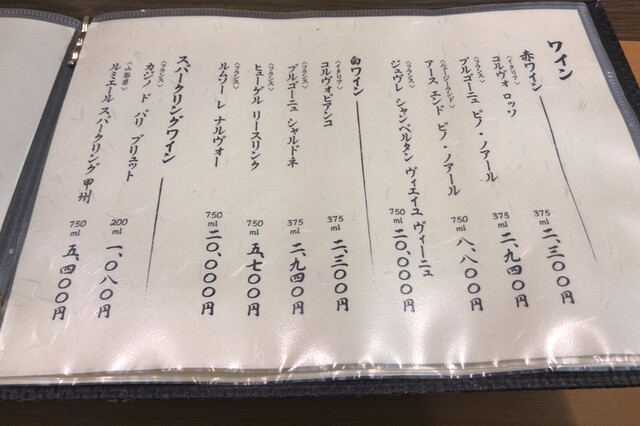 ワイン
赤ワイン
〈イタリア〉
コルヴォ ロッソ 375ml 二、三〇〇円
〈フランス〉
ブルゴーニュ ピノ・ノアール 375ml 二、九四〇円
〈ニュージーランド〉
アース エンド ピノ・ノアール 750ml 八、八〇〇円
〈フランス〉
ジュヴレ シャンベルタン ヴィエイユ ヴィーニュ 750ml 二〇、〇〇〇円
白ワイン
〈イタリア〉
コルヴォビアンコ 375ml 二、三〇〇円
〈フランス〉
ブルゴーニュ シャルドネ 375ml 二、九四〇円
〈フランス〉
ヒューゲル リースリンク 750ml 五、七〇〇円
〈フランス〉
ルムソー レ ナルヴォー 750ml 二〇、〇〇〇円
スパークリングワイン
〈フランス〉
カジノ ド パリ ブリュット 200ml 一、〇八〇円
〈山梨県〉
ルミエール スパークリング 甲州 750ml 五、四〇〇円